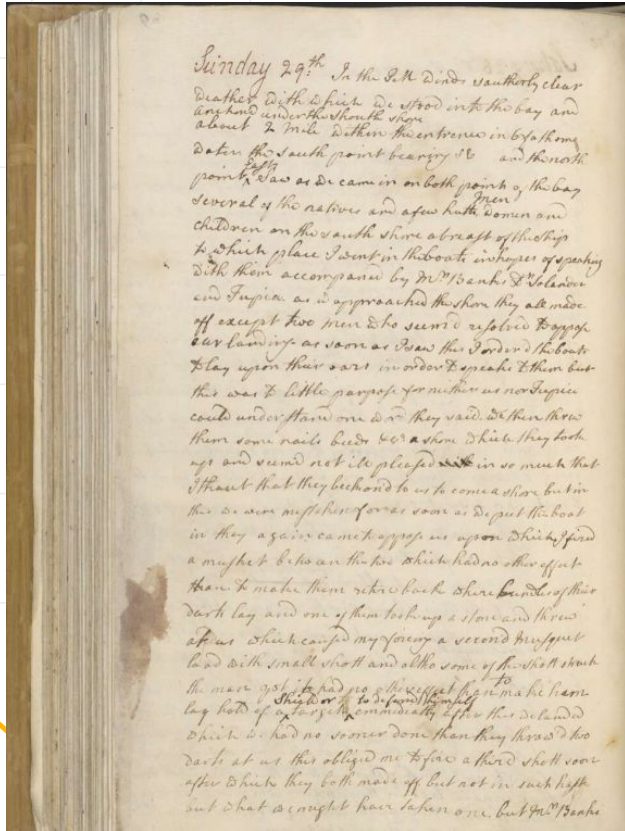 Sunday 29th. In the PM winds southerly clear
weather with which we stood into the bay and
Anchord under the South shore
about 2 Mile within the entrence in 6 fathoms
water, the south point bearing SE and the north
point East,
Saw as we came in on both points of the bay
Several of the natives and a few hutts, Men
women and
children on the south shore abreast of the Ship
to which place I went in the boats in hopes of speaking
with them accompaned by Mr. Banks Dr. Solander
and Tupia as we approached the shore they all made
off except two Men who seem'd resolved to oppose
our landing as soon as I saw this I order'd the boats
to lay upon their oars in order to speake to them but
this was to little purpose for neither us nor Tupia
could understand one word they said. we then threw
them some nails beeds &ca a shore which they took
up and seem'd not ill pleased in so much that
I thout that they beckon'd to us to come a shore but in
this we were mistaken for as soon as we put the boat
in they again came to oppose us upon which I fired
a musket between the two which had no other effect
than to make them retire back where bundles of their
darts lay and one of them took up a stone and threw
at us which caused my fireing a second Musquet
load with small shott and altho some of the shott struck
the man yet it had no other effect than to make him
lay hold of a Shield or target to defend himself
emmediatly after this we landed
which we had no sooner done than they throw'd two
darts at us this obliged me to fire a third shott soon
after which they both made off but not in such haste
but what we might have taken one, but Mr. Banks